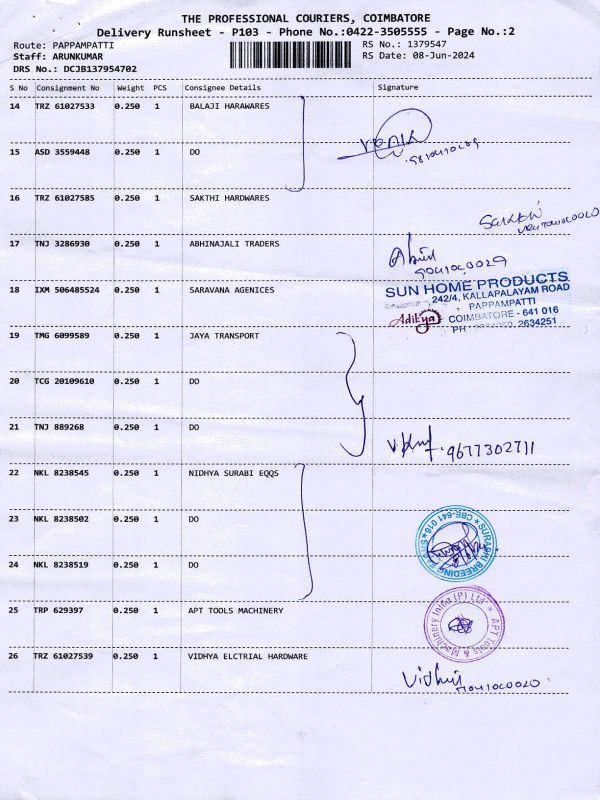 THE PROFESSIONAL COURIERS, COIMBATORE
Delivery Runsheet - P103 - Phone No.:0422-3505555 - Page No.:2
Route: PAPPAMPATTI
RS No.: 1379547
Staff: ARUNKUMAR
RS Date: 08-Jun-2024
DRS No.: DCJB137954702
S No Consignment No Weight PCS Consignee Details Signature
14 TRZ 61027533 0.250 1 BALAJI HARAWARES
15 ASD 3559448 0.250 1 DO
16 TRZ 61027585 0.250 1 SAKTHI HARDWARES
17 TNJ 3286930 0.250 1 ABHINAJALI TRADERS
18 IXM 506485524 0.250 1 SARAVANA AGENICES
SUN HOME PRODUCTS
242/4, KALLAPALAYAM ROAD
PAPPAMPATTI
Aditya COIMBATORE - 641 016
PH 2634251
19 TMG 6099589 0.250 1 JAYA TRANSPORT
20 TCG 20109610 0.250 1 DO
21 TNJ 889268 0.250 1 DO
9677302711
22 NKL 8238545 0.250 1 NIDHYA SURABI EQQS
23 NKL 8238502 0.250 1 DO
SURABHI BREEDING CBE-641 016
24 NKL 8238519 0.250 1 DO
25 TRP 629397 0.250 1 APT TOOLS MACHINERY
APT Tools & Machinary India (P) Ltd
26 TRZ 61027539 0.250 1 VIDHYA ELCTRIAL HARDWARE